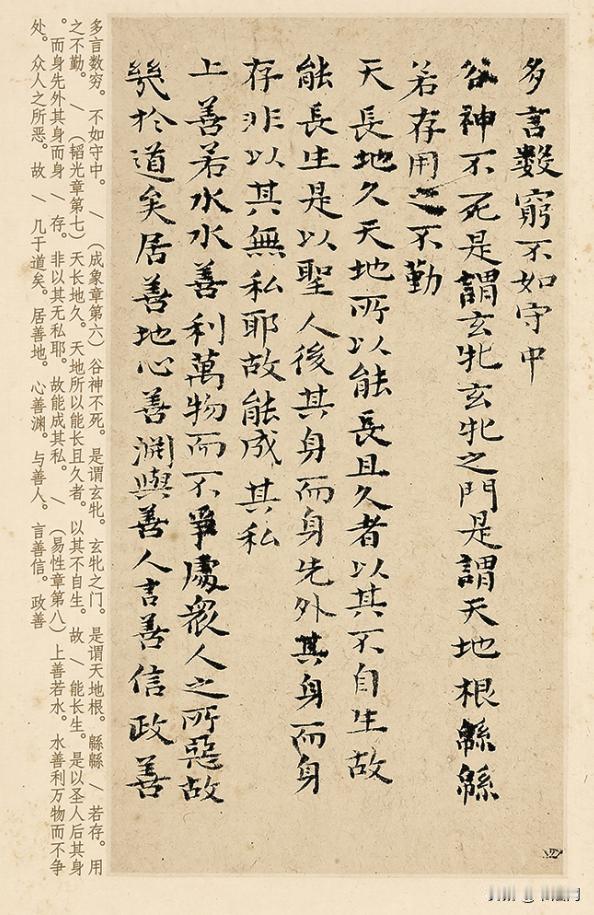 多言數窮不如守中
谷神不死是謂玄牝玄牝之門是謂天地根緜緜
若存用之不勤
天長地久天地所以能長且久者以其不自生故
能長生是以聖人後其身而身先外其身而身
存非以其無私耶故能成其私
上善若水水善利萬物而不爭處衆人之所惡故
㡬於道矣居善地心善渊與善人言善信政善
多言数穷。不如守中。\(成象章第六)谷神不死。是谓玄牝。玄牝之门。是谓天地根。緜緜\若存。用
之不勤。\(韬光章第七)天长地久。天地所以能长且久者。以其不自生。故\能长生。是以圣人后其身
。而身先外其身而身\存。非以其无私耶。故能成其私。\(易性章第八)上善若水。水善利万物而不争
处。众人之所恶。故\几于道矣。居善地。心善渊。与善人。言善信。政善